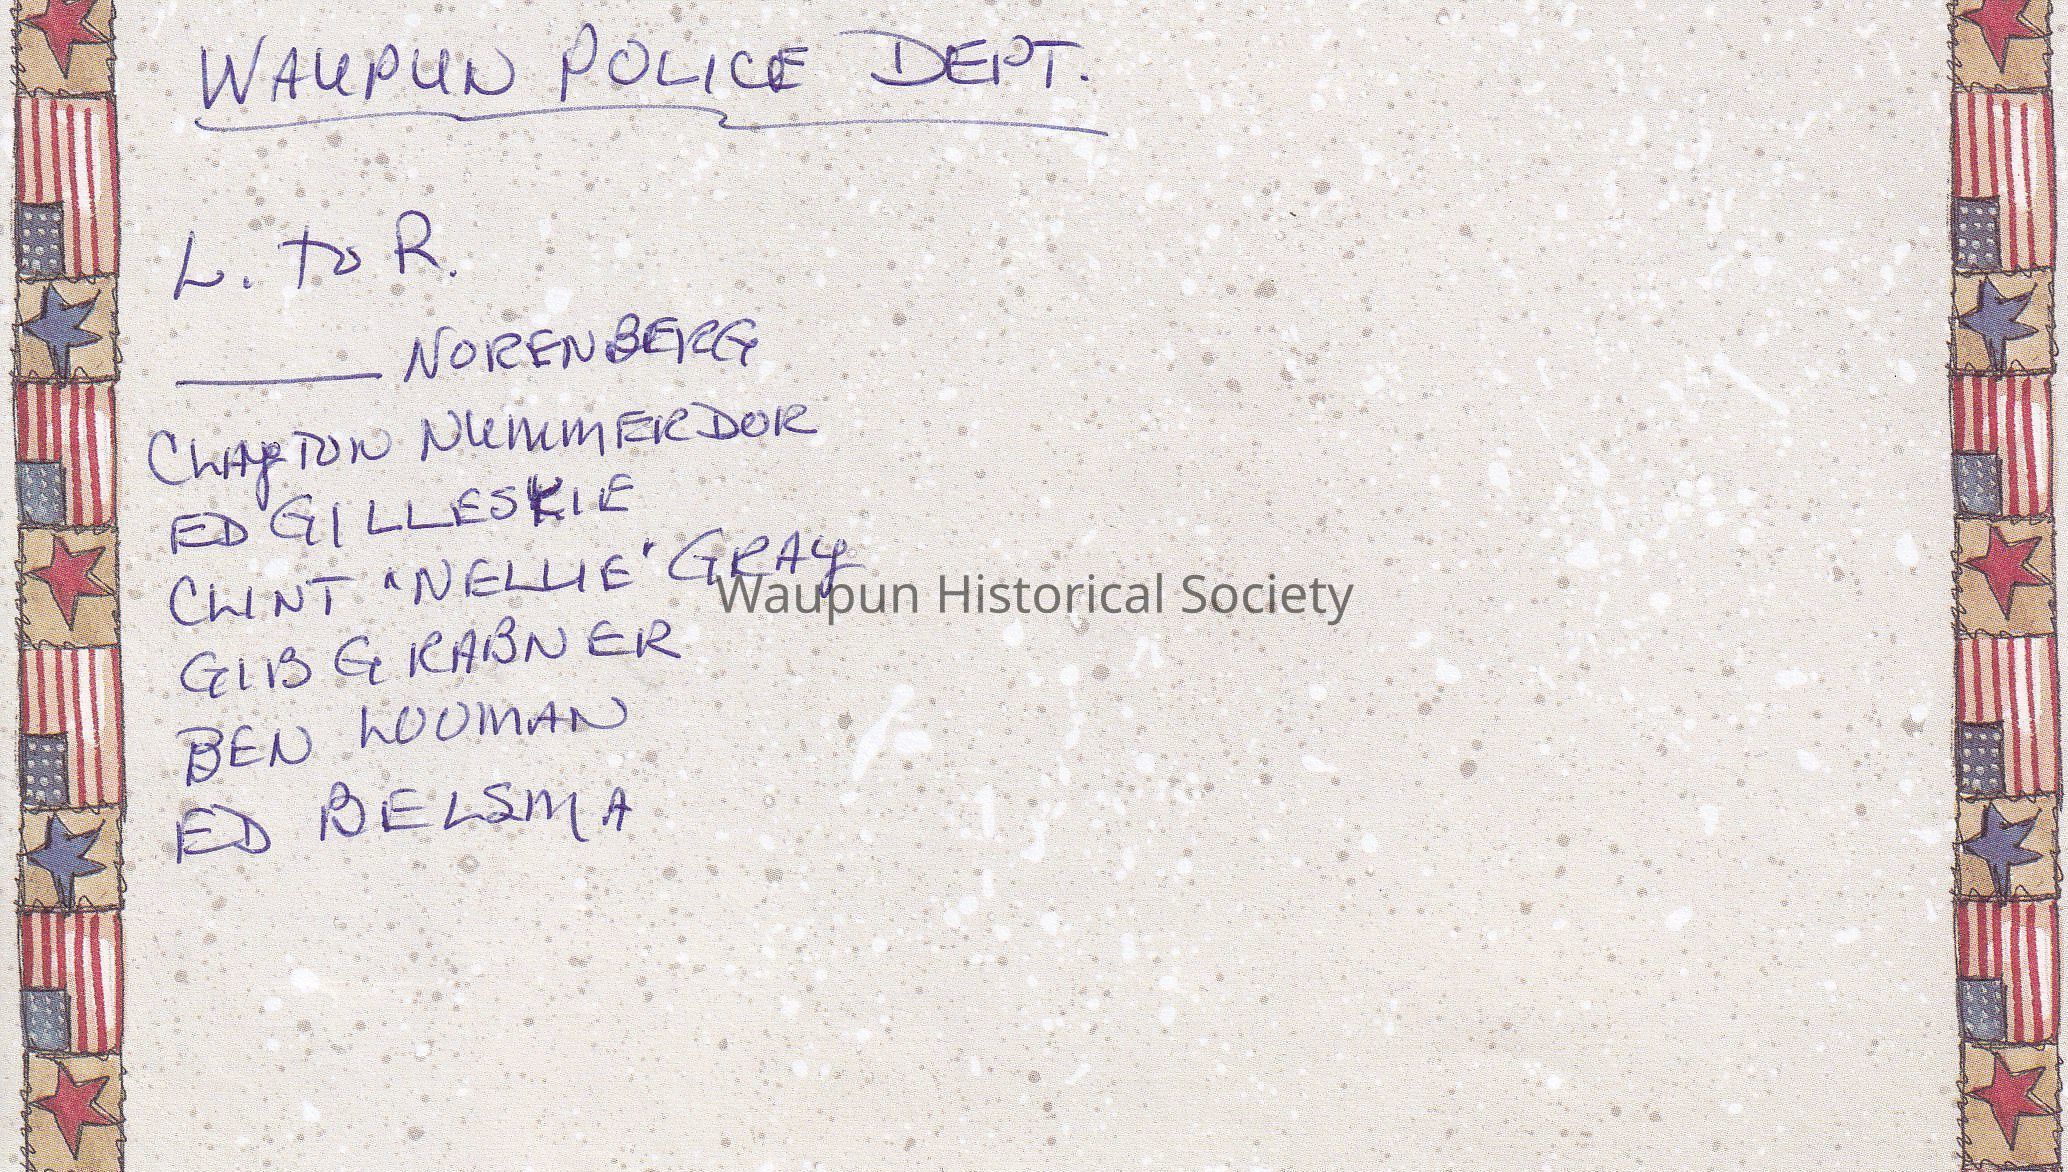 WAUPUN POLICE DEPT.
L. TO R.
______ NORENBERG
CLAYTON NUMMERDOR
ED GILLESKIE
CLINT "NELLIE" GRAY
Waupun Historical Society
GIB GRABNER
BEN LOOMAN
ED BELSMA